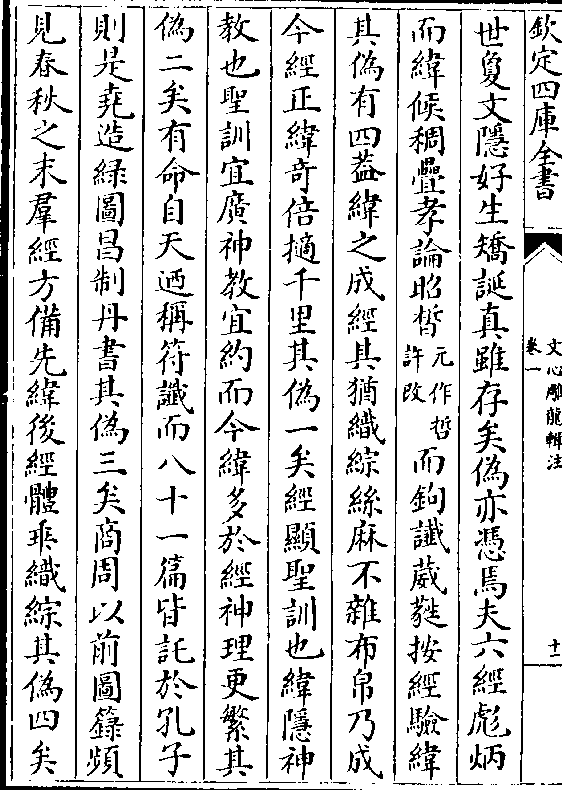 欽定四庫全書
文心雕龍輯注
卷一
十一
世夐文隱好生矯誕真雖存矣偽亦憑焉夫六經彪炳
而緯候稠疊孝論昭晳元作晢許改而鉤讖葳蕤按經驗緯
其偽有四葢緯之成經其猶織綜絲麻不雜布帛乃成
今經正緯奇倍擿千里其偽一矣經顯聖訓也緯隱神
教也聖訓宜廣神教宜約而今緯多於經神理更繁其
偽二矣有命自天廼稱符讖而八十一篇皆託於孔子
則是堯造綠圖昌制丹書其偽三矣商周以前圖籙頻
見春秋之末羣經方備先緯後經體乖織綜其偽四矣